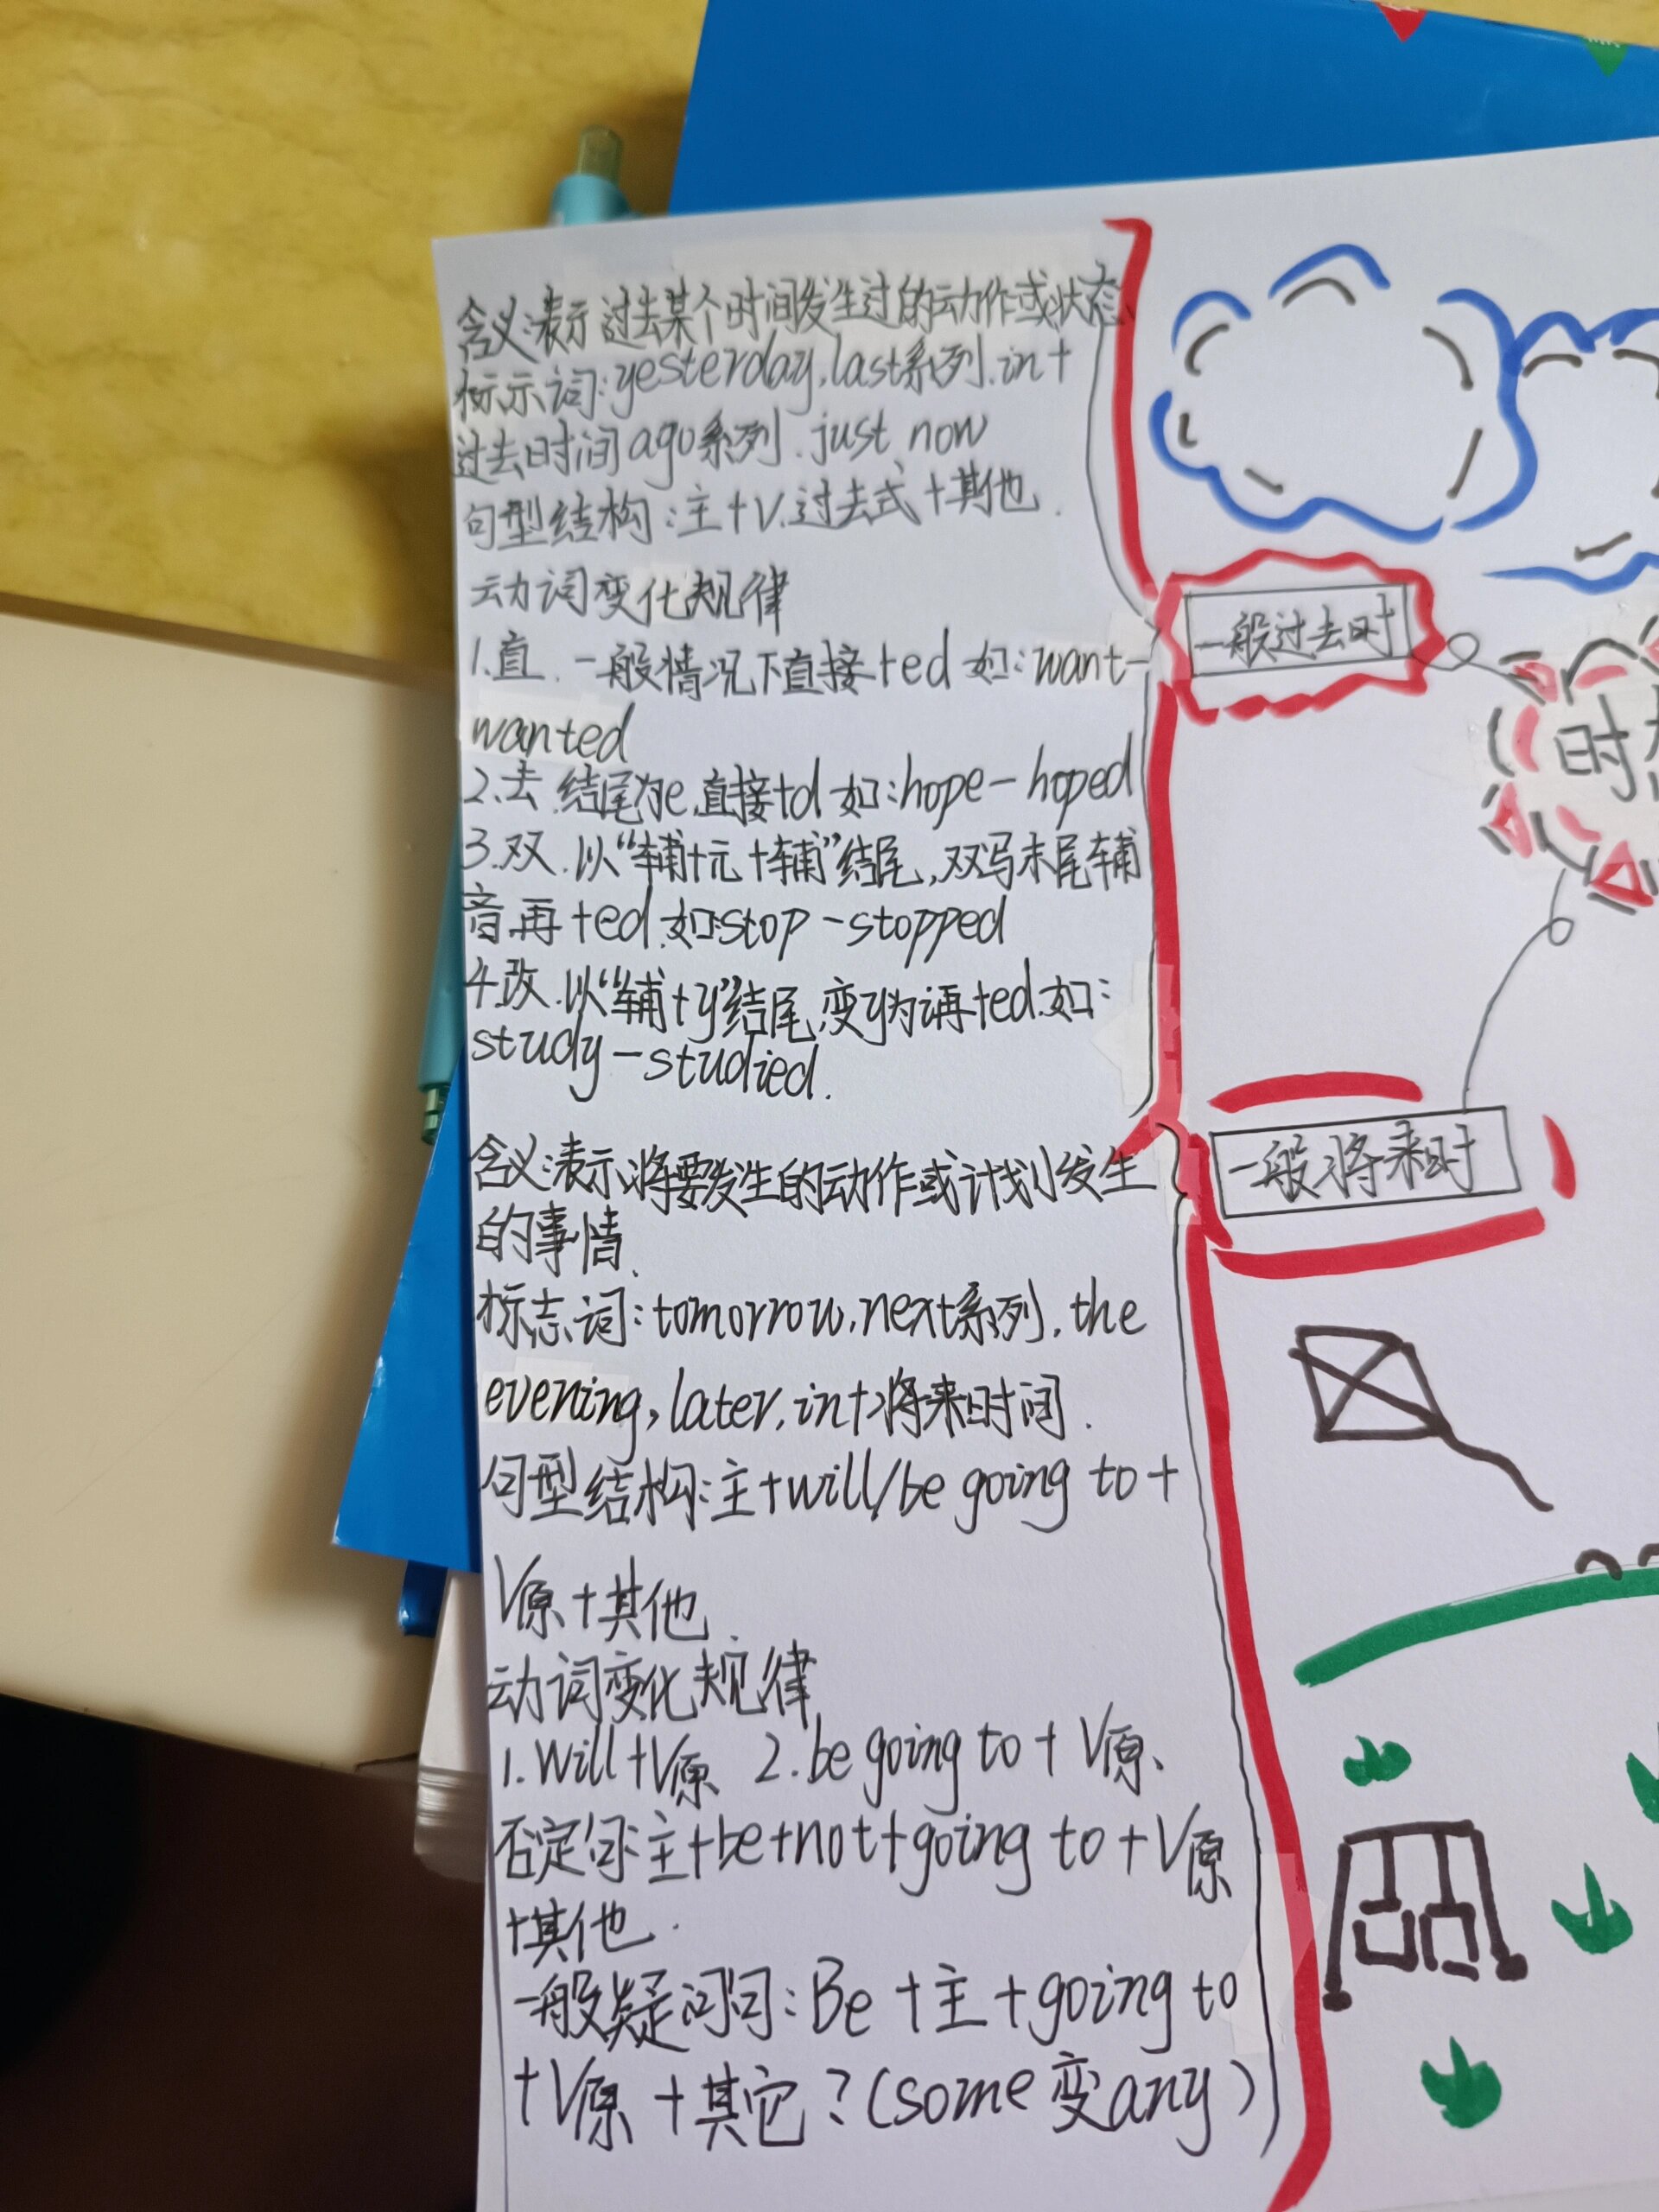 含义:表示过去某个时间发生过的动作或状态、
标示词:yesterday.last系列.in+
过去时间ago系列.just now
句型结构:主+V.过去式+其他.
动词变化规律
1.直.一般情况下直接+ed 如:want-
wanted
2.去.结尾为e,直接+d 如:hope-hoped
3.双.以“辅+元+辅”结尾,双写末尾辅
音再+ed.如:stop-stopped
4.改.以“辅+y”结尾,变y为i再+ed.如:
study-studied.
含义:表示将要发生的动作或计划发生
的事情.
标志词:tomorrow,next系列.the
evening,later,in+将来时间.
句型结构:主+will/be going to+
V原+其他.
动词变化规律
1.Will+V原 2.be going to+V原.
否定句:主+be+not+going to+V原
+其他.
一般疑问句:Be+主+going to
+V原+其它?(some变any)
一般过去时
时态
一般将来时